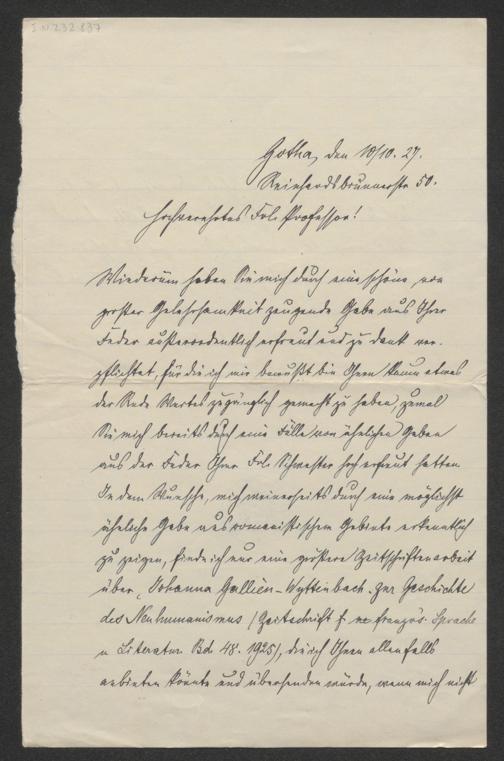 I.N. 232.837
Gotha, den 10/10. 27.
Reinhardsbrunnerstr 50.
Hochverehrtes Frl. Professor!
Wiederum haben Sie mich durch eine schöne, von
großer Gelehrsamkeit zeugende Gabe aus Ihrer
Feder außerordentlich erfreut und zu Dank ver-
pflichtet, für die ich mir bewußt bin Ihnen kaum etwas
der Rede Wertes zugänglich gemacht zu haben, zumal
Sie mich bereits durch eine Fülle von ähnlichen Gaben
aus der Feder Ihrer Frl. Schwester hoch erfreut hatten.
In dem Wunsche, mich meinerseits durch eine möglichst
ähnliche Gabe aus romanistischem Gebiete erkenntlich
zu zeigen, finde ich nur eine größere Zeitschriftenarbeit
über "Johanna Gallien-Wyttenbach. Zur Geschichte
des Neuhumanismus (Zeitschrift f. neufranzös. Sprache
u Literatur Bd 48. 1925), die ich Ihnen allenfalls
anbieten könnte und übersenden würde, wenn mich nicht